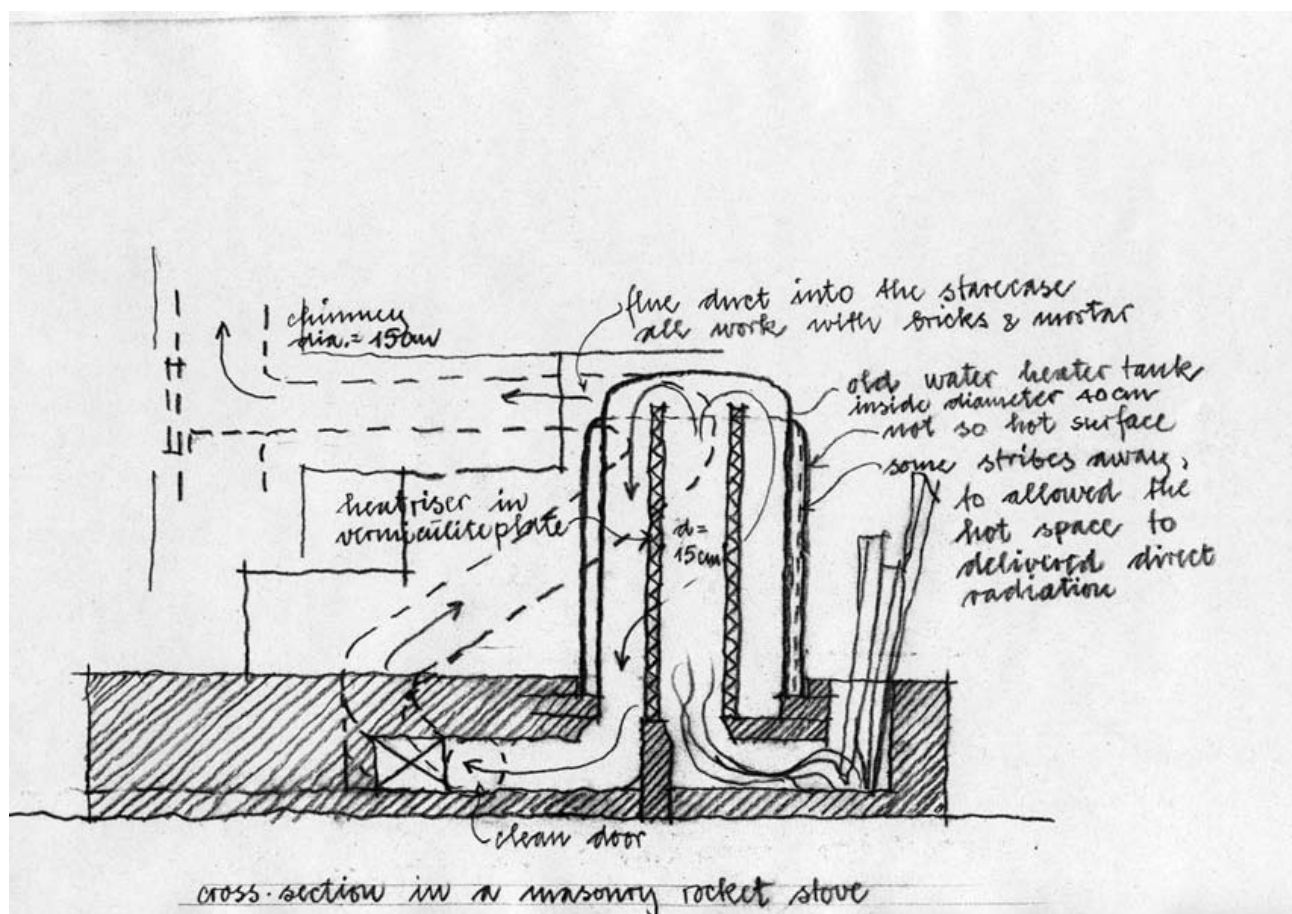 chimney
dia. = 15cm
flue duct into the starecase
all work with bricks & mortar
old water heater tank
inside diameter 40cm
not so hot surface
some stribes away,
to allowed the
hot space to
delivered direct
radiation
heatriser in
vermiculiteplate
d=
15cm
clean door
cross-section in a masonry rocket stove